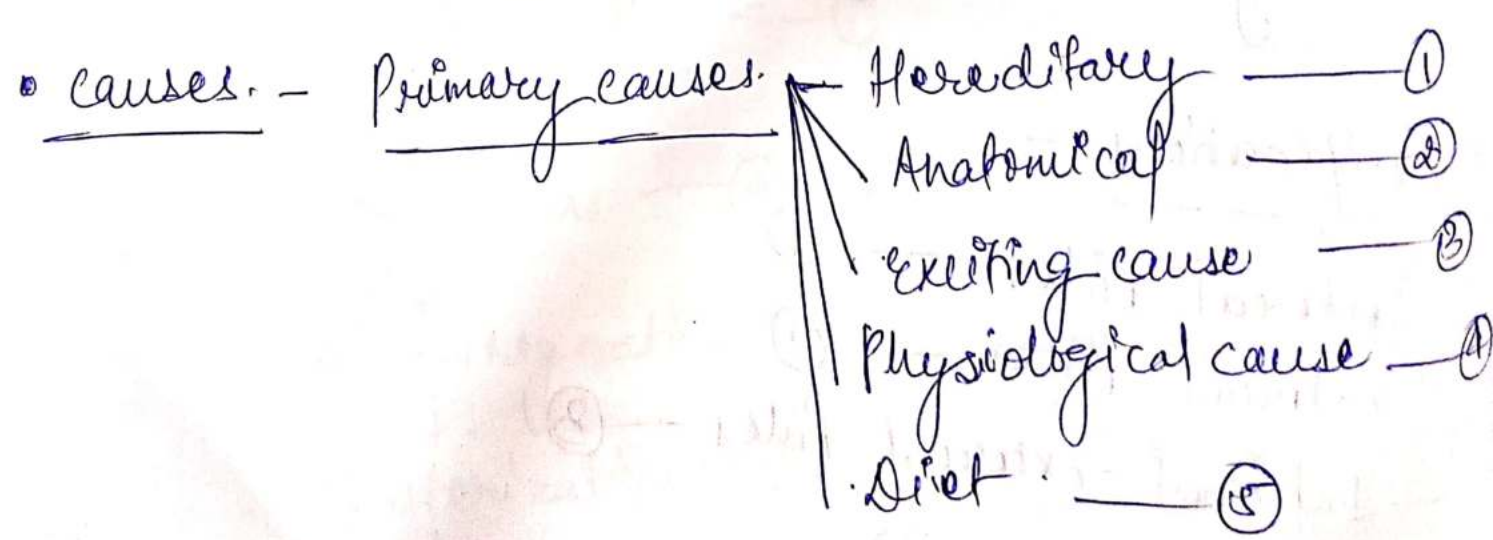 • Causes. - Primary causes. - Hereditary — ①
Anatomical — ②
Exciting cause — ③
Physiological cause — ④
Diet. — ⑤